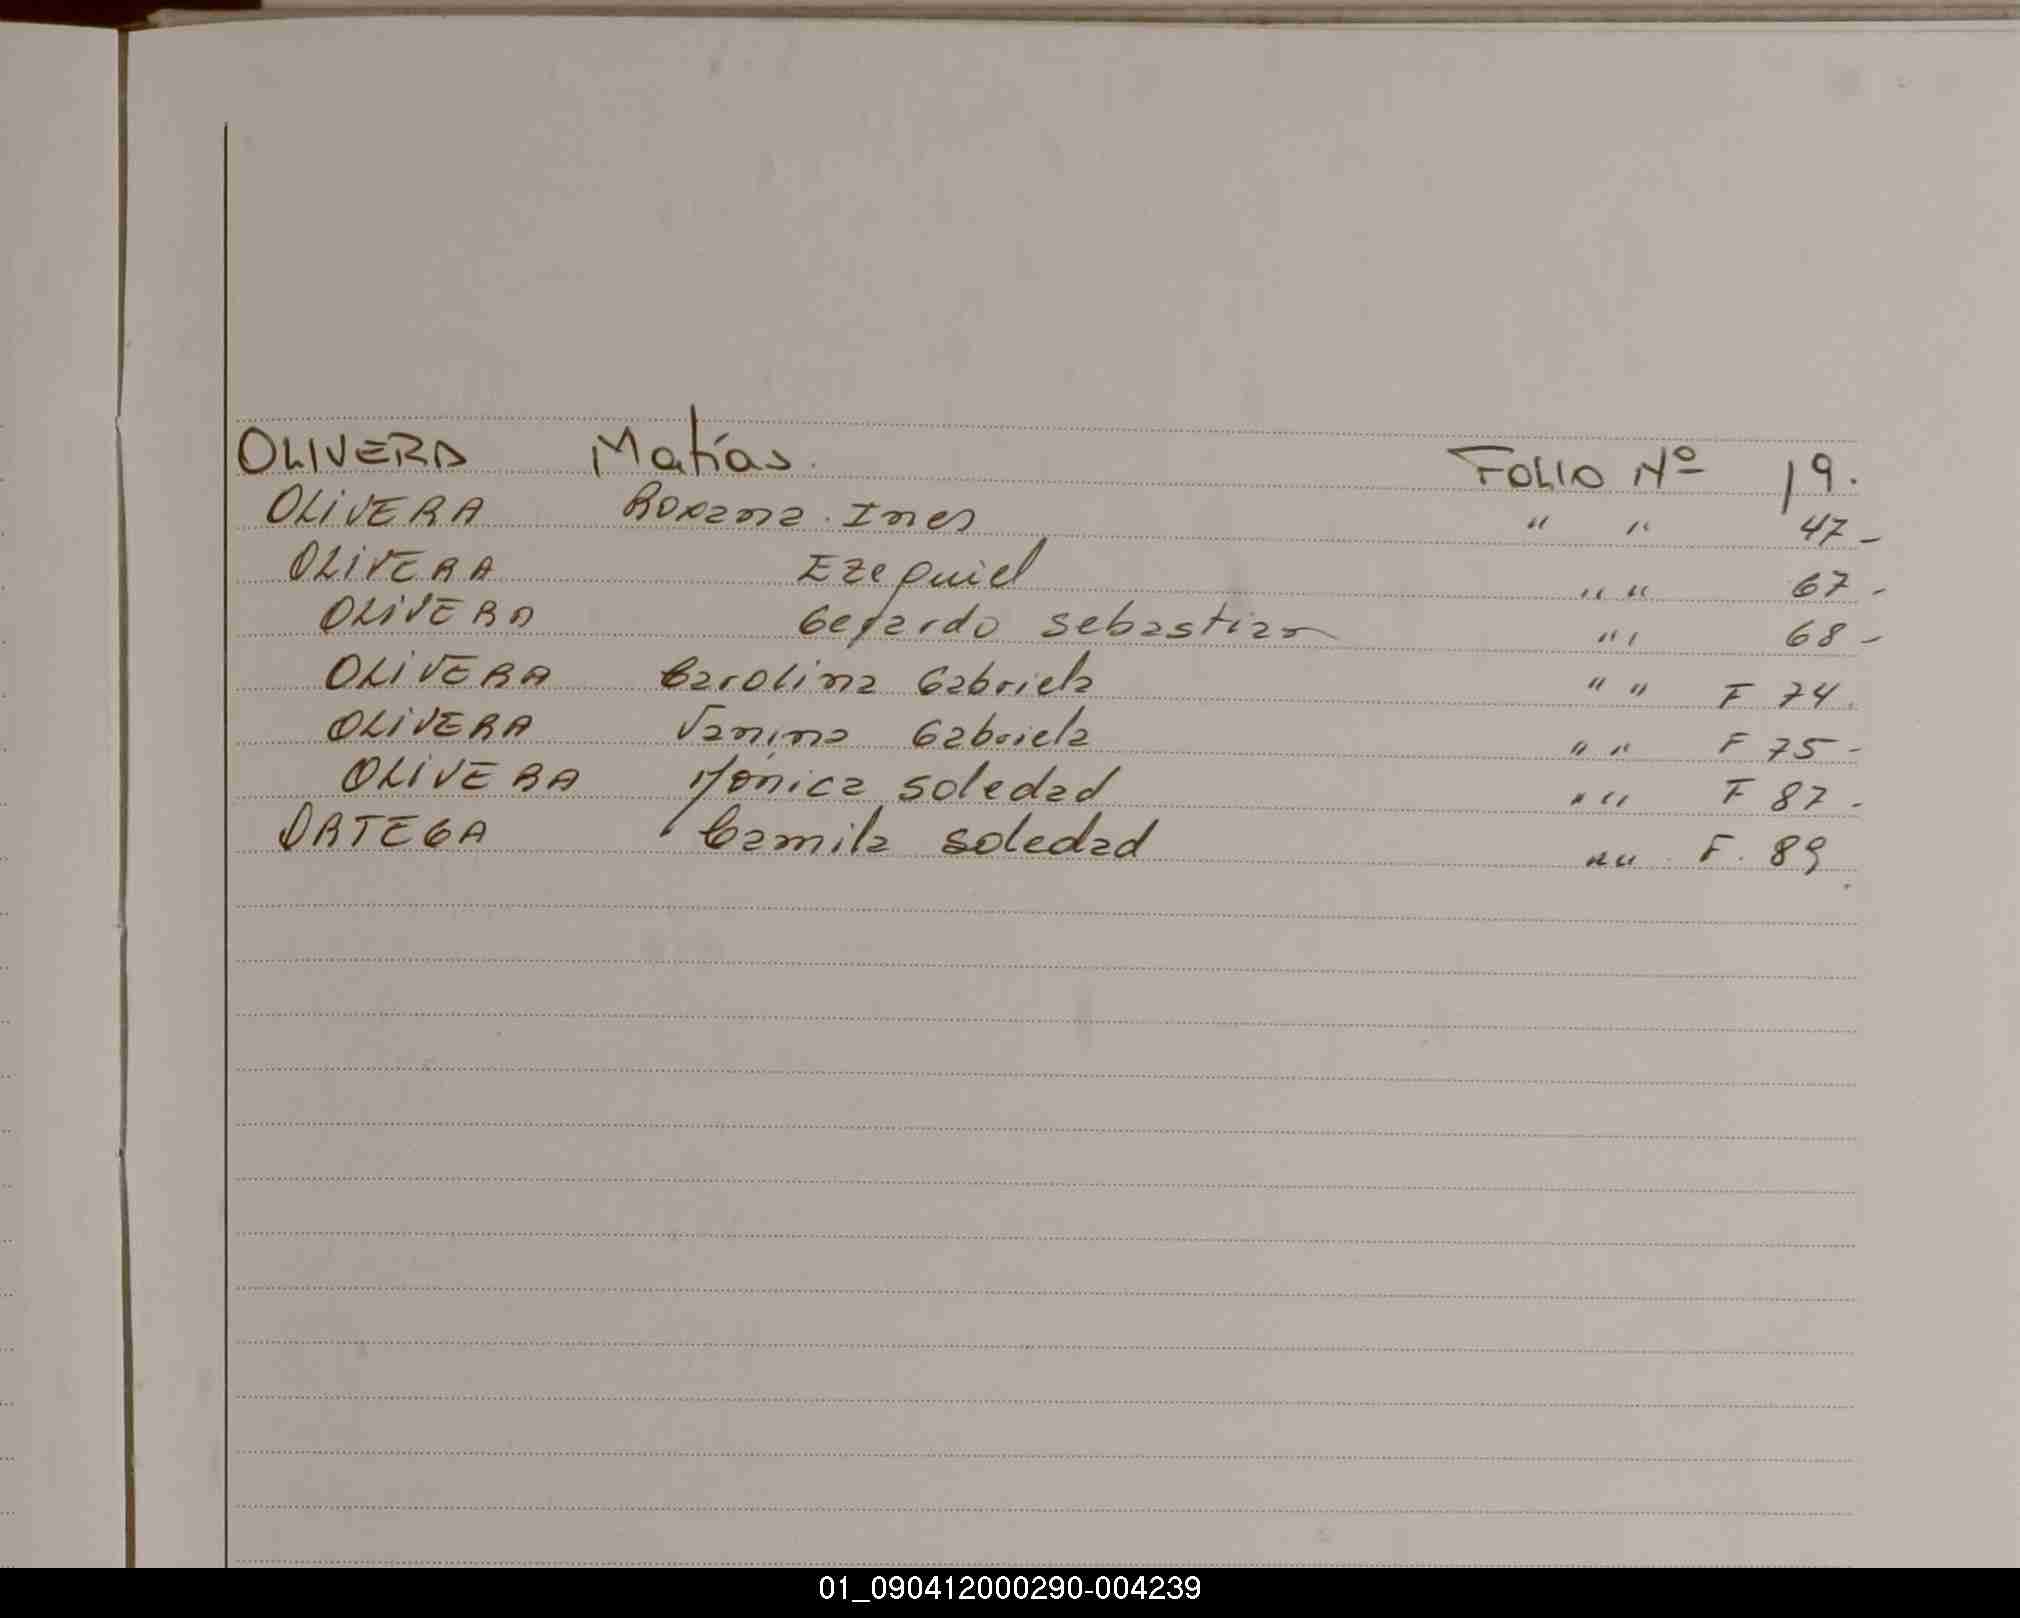 OLIVERA Matías. FOLIO Nº 19.
OLIVERA Roxana. Ines " " 47 -
OLIVERA Ezequiel " " 67 -
OLIVERA Gerardo Sebastian " " 68 -
OLIVERA Carolina Gabriela " " F 74.
OLIVERA Vanina Gabriela " " F 75 -
OLIVERA Mónica Soledad " " F 87 -
ORTEGA Camila Soledad " " F. 89
01_090412000290-004239